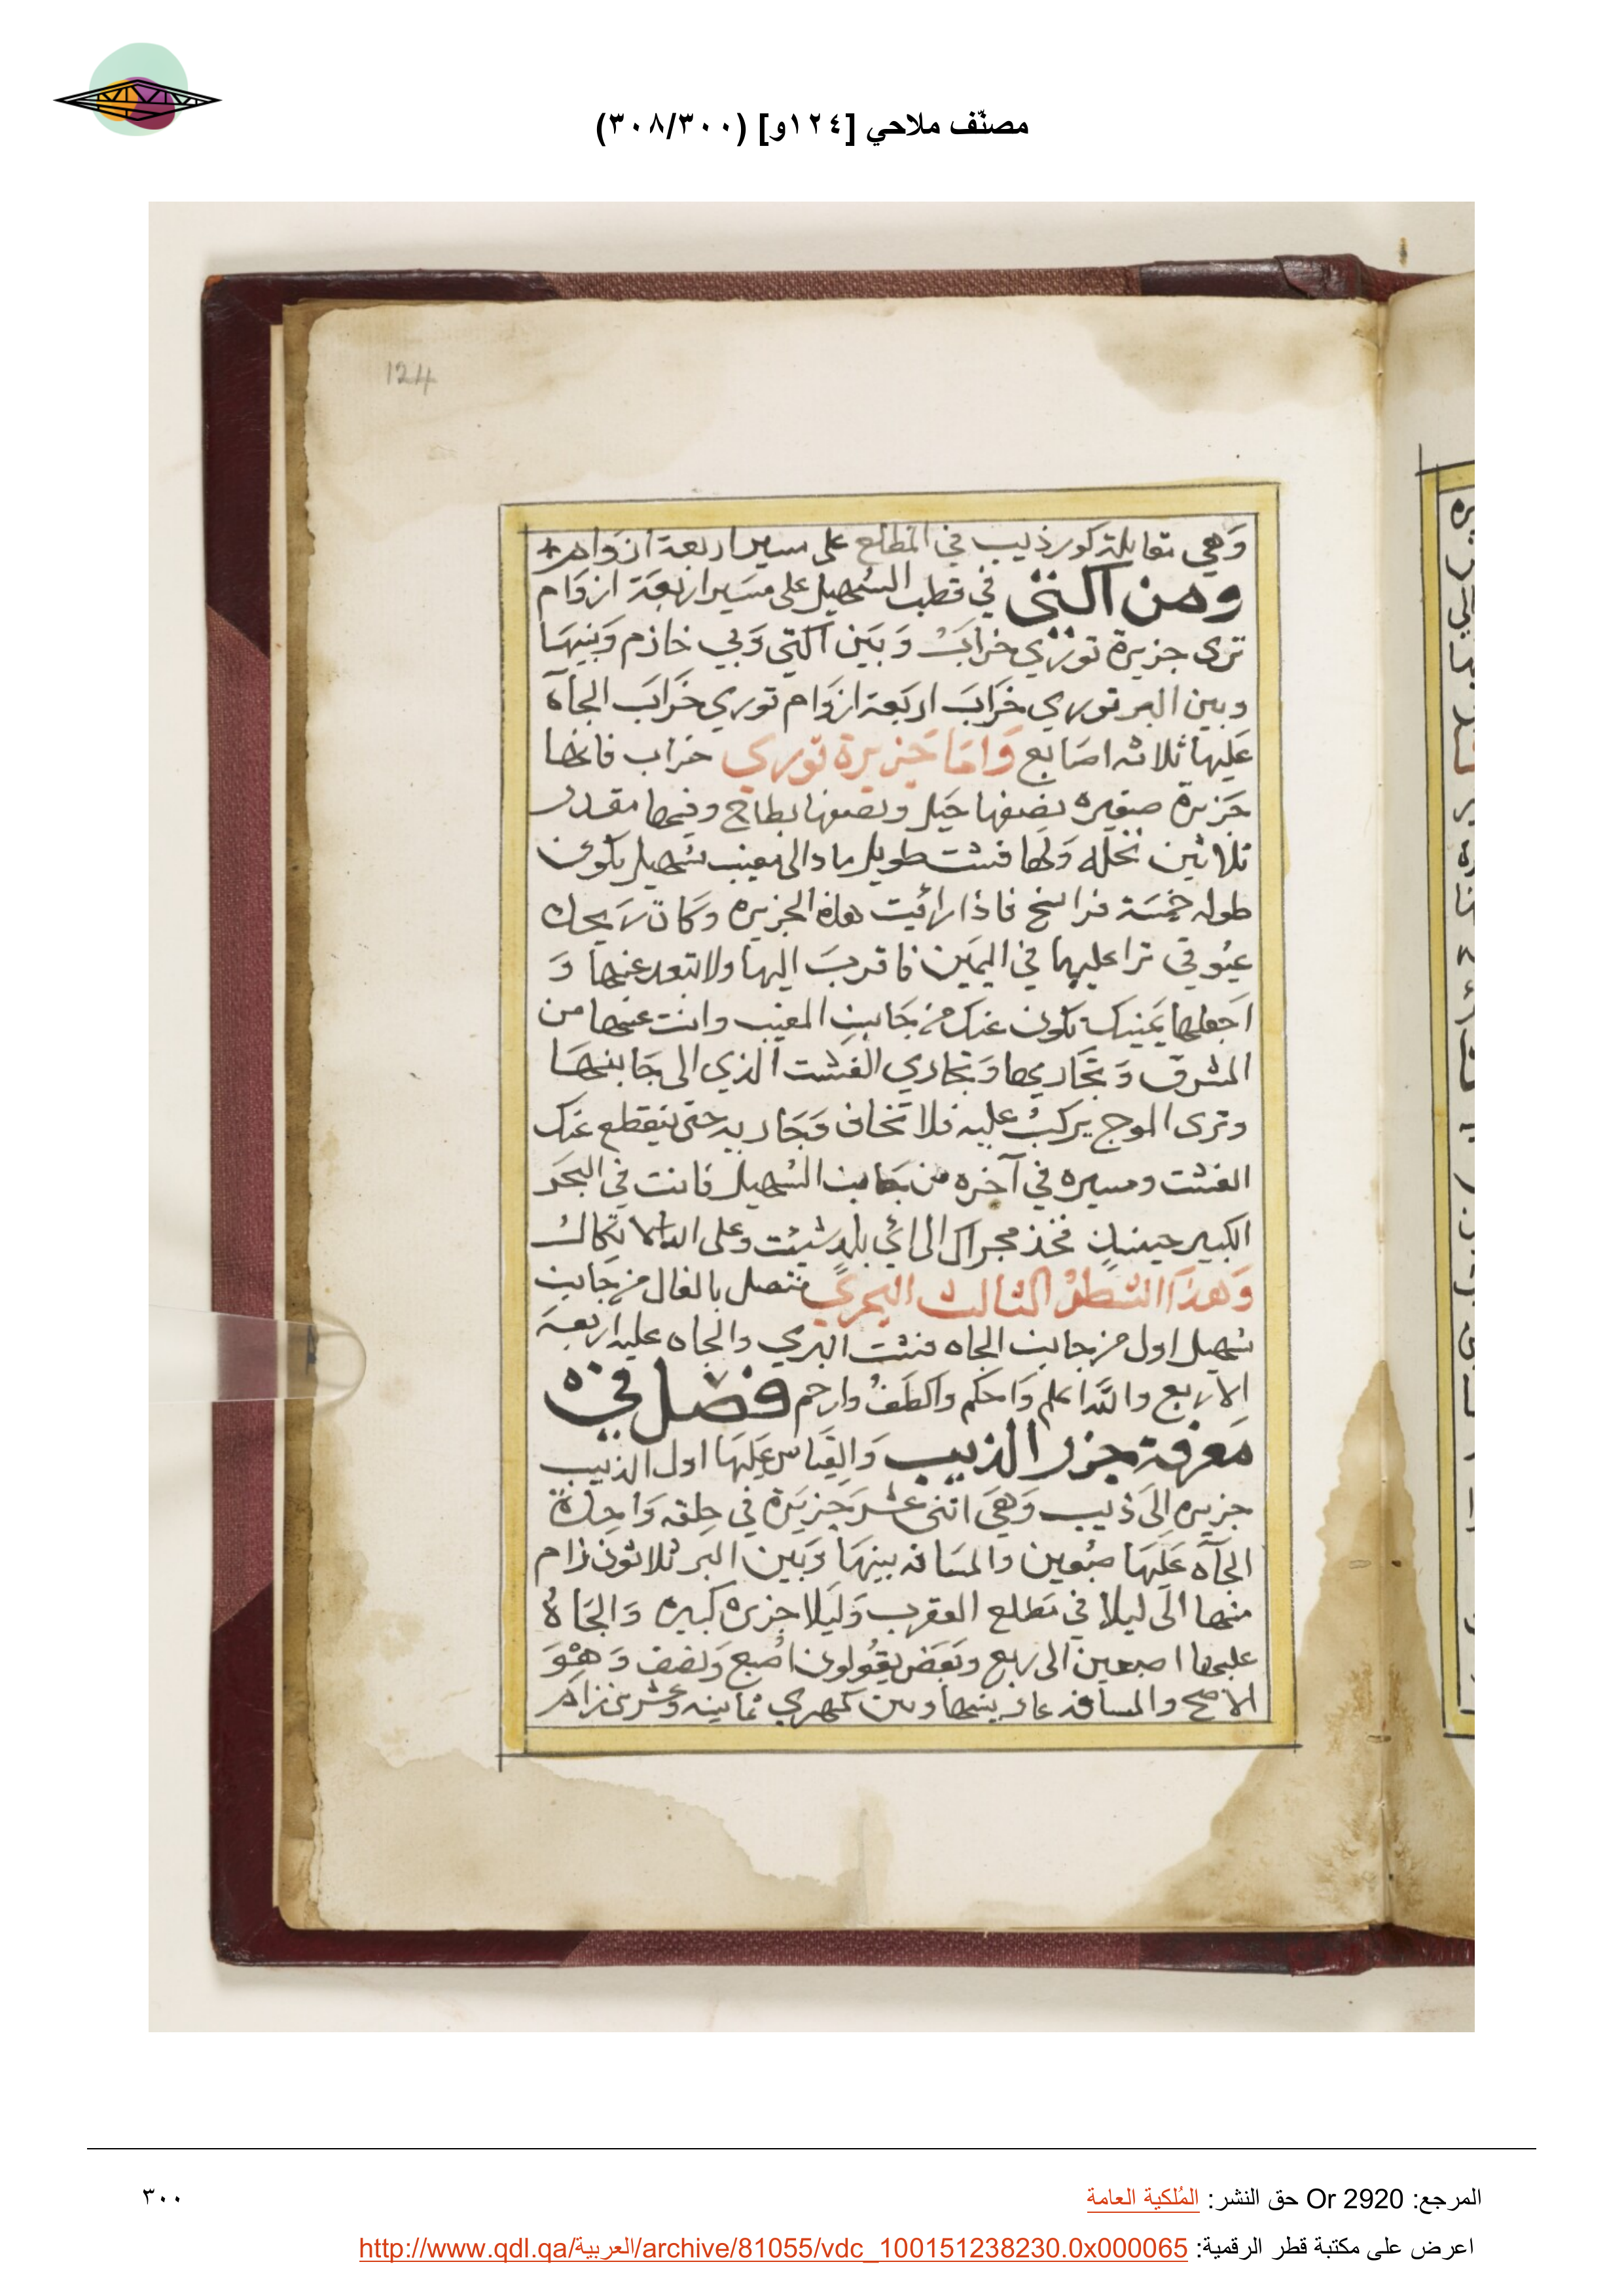 مصنّف ملاحي [١٢٤و] (٣٠٨/٣٠٠)
124
وَهي مقابلة كور ذيب في المطلع على مسير اربعة ازوام
ومن اكتى في قطب السُهيل على مسَير اربَعَة ازوَام
ترى جزيرة توري خرابَ وَبَين اكتي وَبي خازم وَبينهَا
وبين البر توري خَرابَ اربَعة ازوَام توري خَرَابَ الجاَه
عَليها ثلاثه اصَابع وَامَا جَزيرة توري خراب فانها
جَزيرة صغيره نصفها جَبل ونصفها بطاح وفيها مقدار
ثلاثين نخله وَلها فشت طويل ماد الى مغيب سُهيل يكون
طوله خمسَة فراسخ فاذا رائيت هاذه الجزيره وَكانَ رَيحك
عيُوقي ترا عليها في اليمَين فاقربَ اليها ولا تبعد عنها وَ
اجعلها يَمينك تكون عنك من جَانبِ المغيب وانت عنها من
المشرق وَتجَاريها وَتجاري الفشت الذي الى جَانبهَا
وترى الموج يركبُ عليه فلا تخاف وَجَاريه حتى ينقطع عَنك
الفشت ومسيره في آخره من جَانب السُهيل فانت في البحَر
الكبير حينيذٍ فخذ مجراك الى ائي بلدٍ شيئت وعلى الله الاتكال
وَهذا الشطرُ الثالث البحري متصل بالفال من جَانب
سُهيل اول من جانب الجاه فشت البري والجاه عليه اربعَة
الا ربع والله اعلم وَاحكم والطَفُ وارحم فصل في
مَعرفة جزر الذيب وَالقيَاس عَليهَا اول الذيب
جزيره اِلىَ ذيب وَهيَ اثنى عشر جَزيَرة في حِلقه وَاحِدةً
الجآه عَليَهَا صبُعين والمسَافه بينهَا وَبَين البر ثلاثون زام
منها الىَ ليلا في مَطلع العقرب وَليَلا جزيره كبيره وَالجَاهُ
عليها اصبعين الى ربع وبَعَض يقُولون اصُبع وَنصف وَهوَ
الاصح والمسافه بينها وبين كمهري ثمانيه وعشرين زام
المرجع: Or 2920 حق النشر: المُلكية العامة
٣٠٠
اعرض على مكتبة قطر الرقمية: http://www.qdl.qa/العربية/archive/81055/vdc_100151238230.0x000065